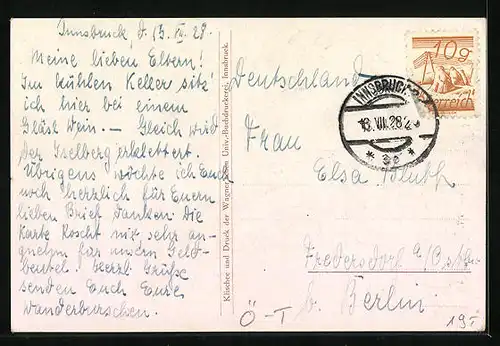 Innsbruck, d. 13. VII. 28.
Meine lieben Eltern!
Im kühlen Keller sitz'
ich hier bei einem
Glasl Wein. — Gleich wird
der Iselberg erklettert.
Übrigens möchte ich Euch
noch herzlich für Euern
lieben Brief danken. Die
Karte kostet nix sehr an-
genehm für unsern Geld-
beutel. Herzl. Grüße
senden Euch Eure
Wanderburschen.
Klischee und Druck der Wagner'schen Univ.-Buchdruckerei, Innsbruck.
Deutschland
Frau
Elsa
Fredersdorf a/Ostb.
b. Berlin
10g
INNSBRUCK
13.VII.28
Ö-T